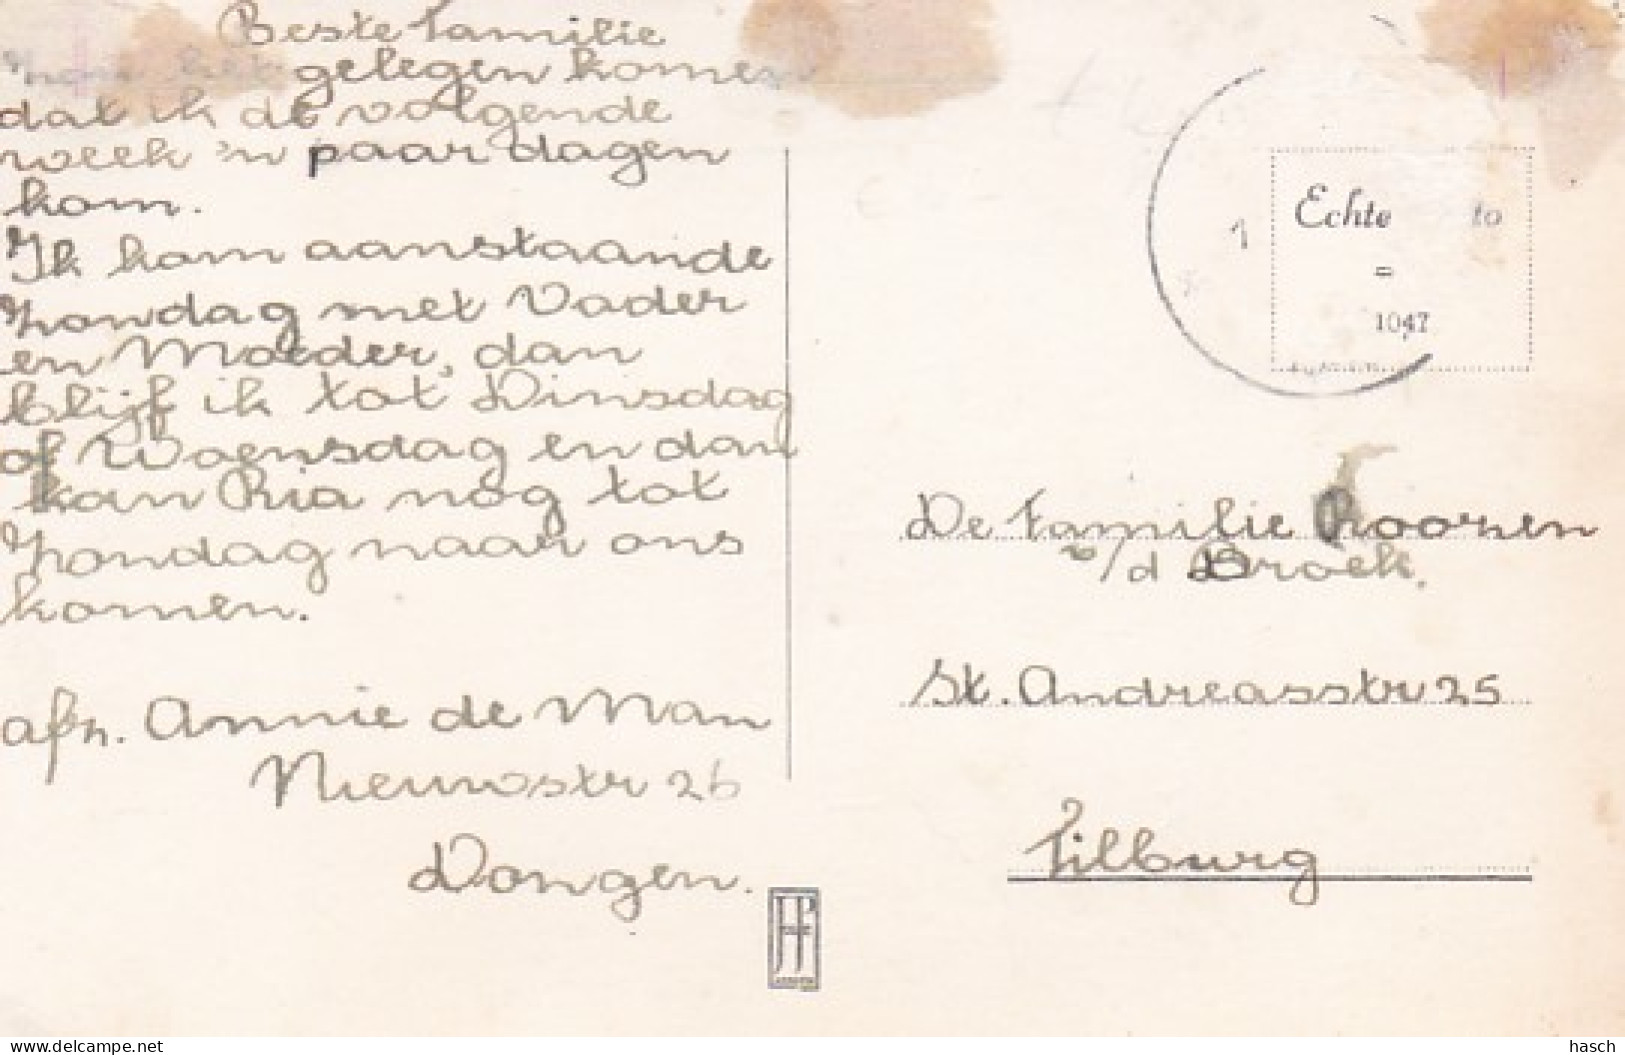 Beste Familie
gelegen komen
dat ik de volgende
week 'n paar dagen
kom.
Ik kom aanstaande
Zondag met Vader
en Moeder, dan
blijf ik tot Dinsdag
of Woensdag en dan
kan Ria nog tot
Zondag naar ons
komen.
afz. Annie de Man
Nieuwstr 26
Dongen.
Echte to
=
1047
1
De Familie Rooren
v/d Broek.
St. Andreasstr 25
Tilburg
delcampe.net
hasch